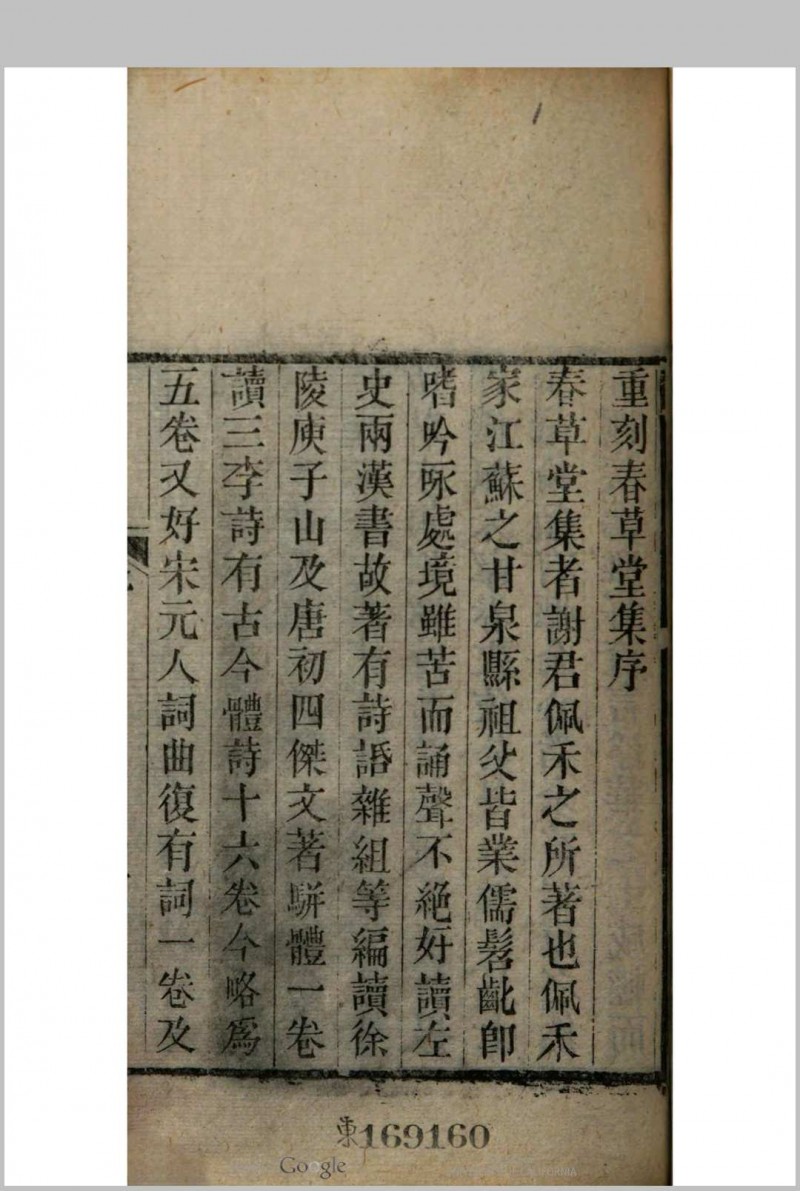 重刻春草堂集序
春草堂集者謝君佩禾之所著也佩禾
家江蘇之甘泉縣祖父皆業儒髫齔卽
嗜吟咏處境雖苦而誦聲不絕好讀左
史兩漢書故著有詩話雜組等編讀徐
陵庾子山及唐初四傑文著駢體一卷
讀三李詩有古今體詩十六卷今略爲
五卷又好宋元人詞曲復有詞一卷及
東169160
Google